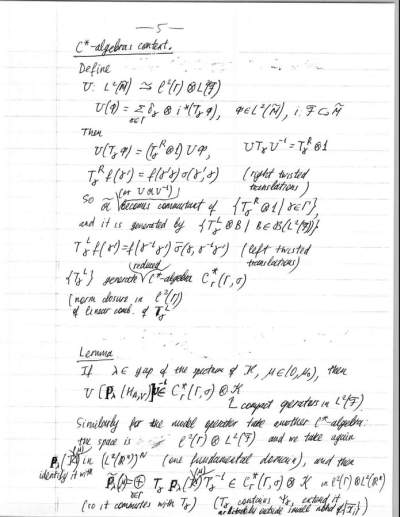 — 5 —
C*-algebras context.
Define
U: L²(M̃) ≃ ℓ²(Γ) ⊗ L²(F)
U(φ) = Σ δ_γ ⊗ i*(T_γ φ), φ ∈ L²(M̃), i: F ⊂ M̃
γ∈Γ
Then
U(T_γ φ) = (T_γ^R ⊗ 1) Uφ, U T_γ U⁻¹ = T_γ^R ⊗ 1
T_γ^R f(γ') = f(γ'γ) σ(γ', γ) (right twisted
translations)
(or U 𝒰 U⁻¹)
So becomes commutant of {T_γ^R ⊗ 1 | γ ∈ Γ},
and it is generated by {T_γ^L ⊗ B | B ∈ B(L²(F))}
T_γ^L f(γ') = f(γ⁻¹γ') σ̄(γ, γ⁻¹γ') (left twisted
translations)
(reduced)
{T_γ^L} generate C*-algebra C_r*(Γ, σ)
(norm closure in ℓ²(Γ)
of linear comb. of T_γ^L
Lemma
If λ ∈ gap of the spectrum of K, μ ∈ (0, μ₀), then
U [P_λ(H_{A,V})] U⁻¹ ∈ C_r*(Γ, σ) ⊗ K
compact operators in L²(F).
Similarly for the model operator take another C*-algebra:
the space is ℓ²(Γ) ⊗ L²(F) and we take again
in (L²(ℝⁿ))^N (one fundamental domain), and then
identify it with
∈ C_r*(Γ, σ) ⊗ K in ℓ²(Γ) ⊗ L²(ℝⁿ)
(so it commutes with T_γ) (T_γ contains, extend it
arbitrarily outside small nbhd of {x̄_j})